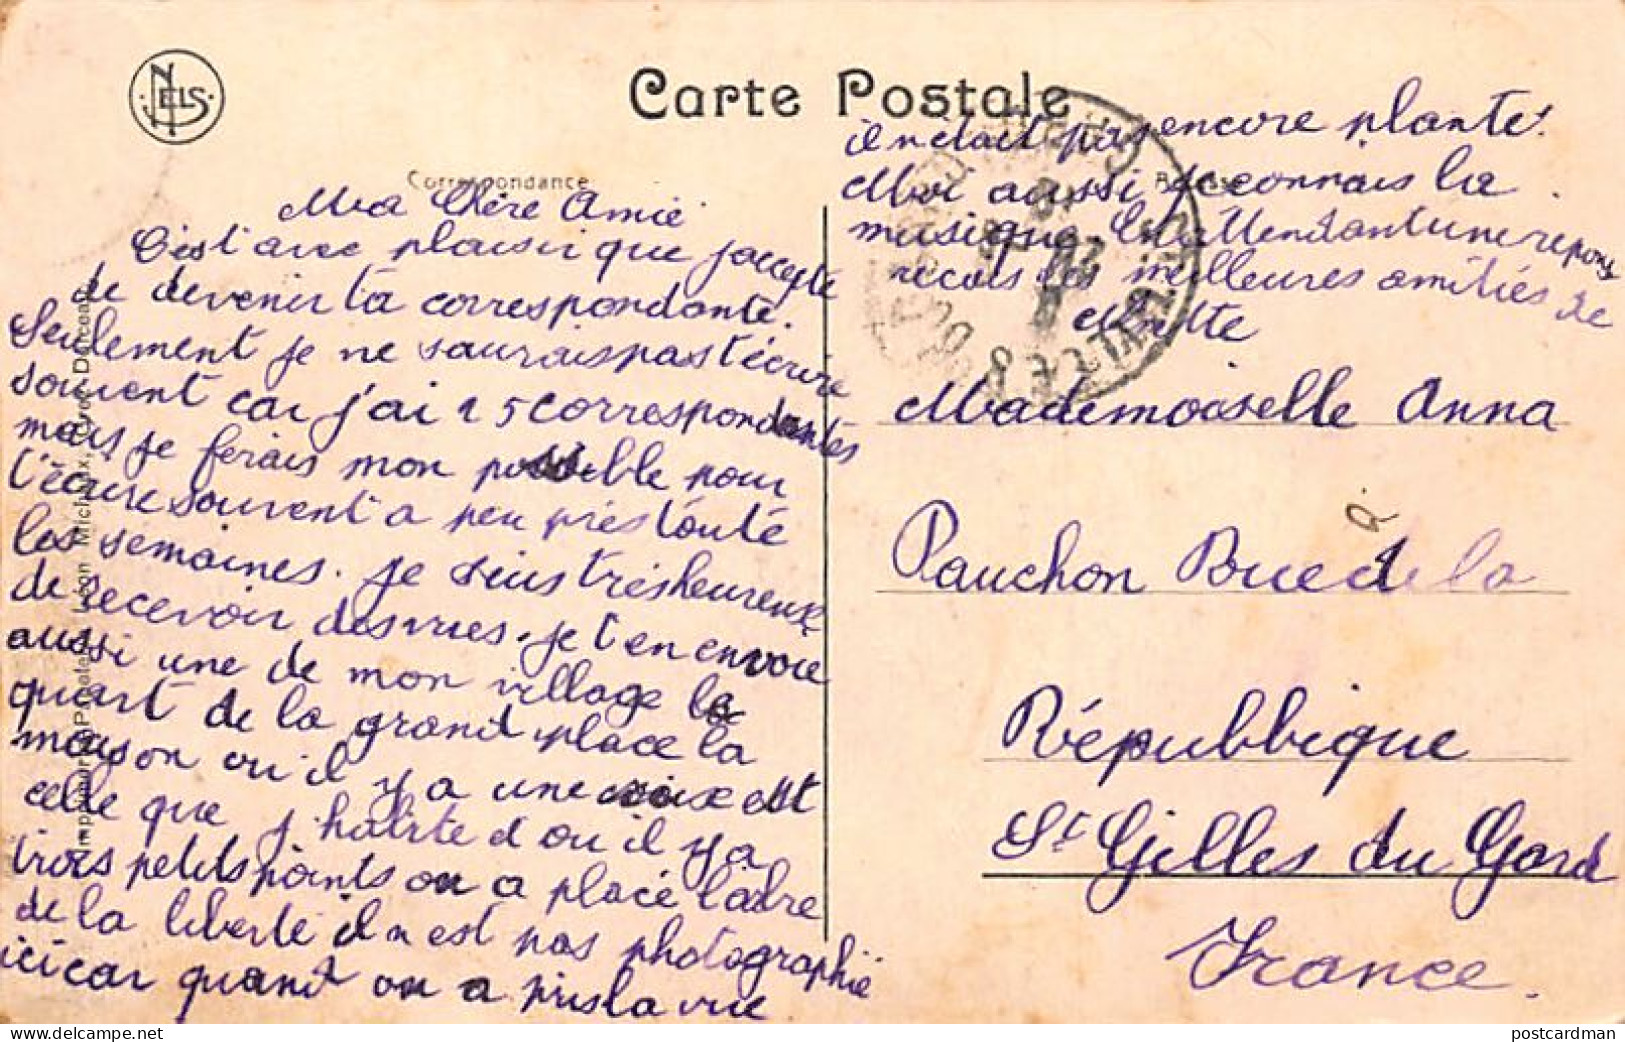 NELS
Carte Postale
Correspondance
Ma Chère Amie
C'est avec plaisir que j'accepte
de devenir ta correspondante.
Seulement je ne saurais pas t'écrire
souvent car j'ai 15 correspondantes
mais je ferais mon possible pour
t'écrire souvent a peu près toute
les semaines. je suis très heureuse
de recevoir des vues. je t'en envoie
aussi une de mon village le
quart de la grand place la
maison ou il y a une croix est
celle que j'habite d ou il y a
trois petits points on a placé l'adre
de la liberté il n est pas photographié
ici car quant on a pris la vue
il n etait pas encore planté.
Moi aussi je connais la
musique. En attendant une repons
recois les meilleures amitiés de
Mademoiselle Anna
Pauchon Rue de la
République
St Gilles du Gard
France.
postcardman